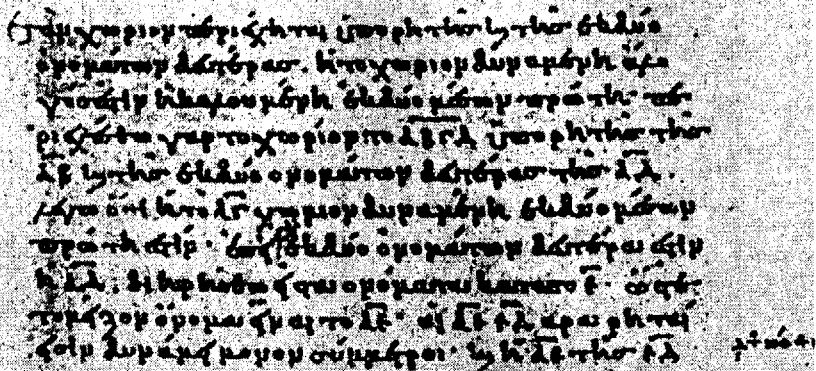 Ἐὰν χωρίον περιέχηται ὑπὸ ῥητῆς καὶ τῆς ἐκ δύο
ὀνομάτων δευτέρας. ἡ τὸ χωρίον δυναμένη ἄλο
γός ἐστιν ἡ καλουμένη ἐκ δύο μέσων πρώτη· πε
ριεχέσθω γὰρ τὸ χωρίον τὸ ΑΒΓΔ ὑπὸ ῥητῆς τῆς
ΑΒ καὶ τῆς ἐκ δύο ὀνομάτων δευτέρας τῆς ΑΔ.
λέγω ὅτι ἡ τὸ ΑΓ χωρίον δυναμένη ἐκ δύο μέσων
πρώτη ἐστίν· ἐκ δύο ὀνομάτων δευτέρα ἐστὶν
ἡ ΑΔ. διῃρήσθω εἰς τὰ ὀνόματα κατὰ τὸ Ε· ὥστε
τὸ μεῖζον ὄνομα εἶναι τὸ ΑΕ· αἱ ΑΕ ΕΔ ἄρα ῥηταί
εἰσιν δυνάμει μόνον σύμμετροι· καὶ ἡ ΑΕ τῆς ΕΔ